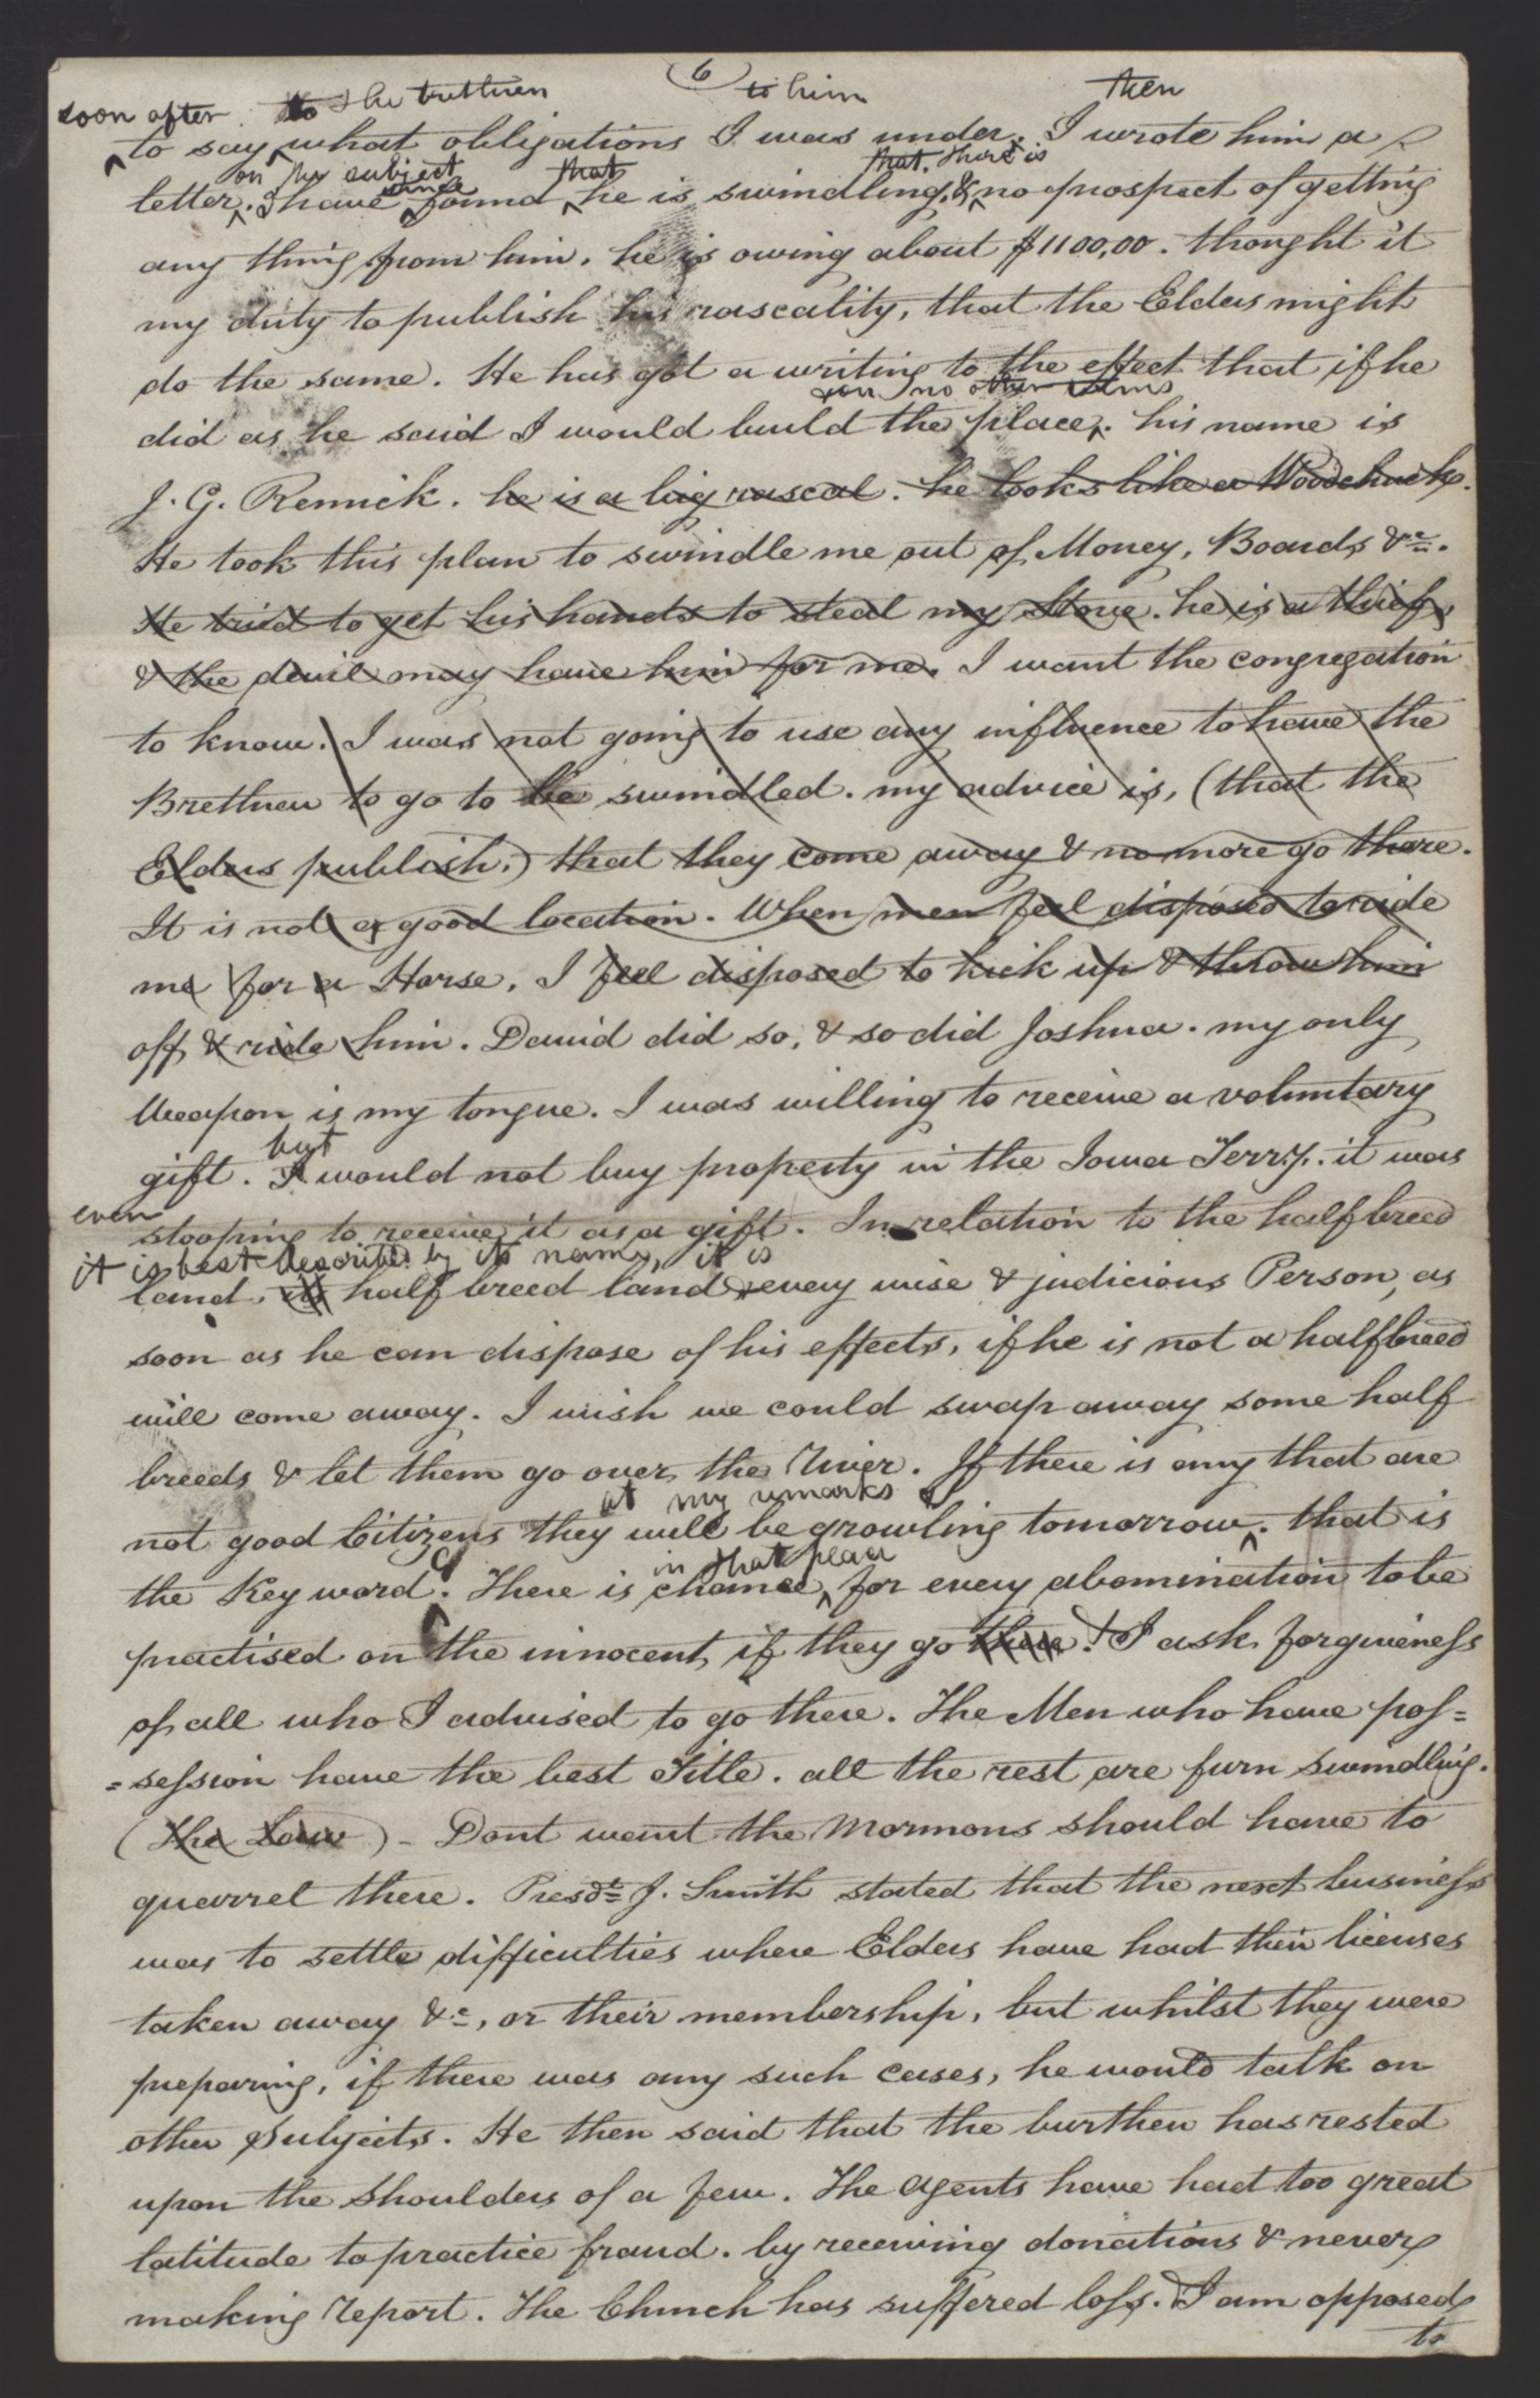 6
soon after to the brethren to him then
to say what obligations I was under. I wrote him a
on the subject since that that. there is
letter. I have found he is swindling, & no prospect of getting
any thing from him. he is owing about $1100,00. thought it
my duty to publish his rascality, that the Elders might
do the same. He has got a writing to the effect that if he
on no other terms
did as he said I would build the place. his name is
J. G. Remick. he is a big rascal. he looks like a Woodchuck.
He took this plan to swindle me out of Money, Boards &c.
He tried to get his hands to steal my Stove. he is a thief,
& the devil may have him for me. I want the congregation
to know. I was not going to use any influence to have the
Brethren to go to be swindled. my advice is, (that the
Elders publish.) that they come away & no more go there.
It is not a good location. When men feel disposed to ride
me for a Horse, I feel disposed to kick up & throw him
off & ride him. David did so, & so did Joshua. my only
Weapon is my tongue. I was willing to receive a voluntary
but
gift. I would not buy property in the Iowa Terry. it was
even
stooping to receive it as a gift. In relation to the half breed
it is best described by its name, it is
land, half breed land every wise & judicious Person, as
soon as he can dispose of his effects, if he is not a half breed
will come away. I wish we could swap away some half
breeds & let them go over the River. If there is any that are
at my remarks
not good Citizens they will be growling tomorrow. that is
in that place
the Key word. There is chance for every abomination to be
practised on the innocent, if they go there! I ask forgiveness
of all who I advised to go there. The Men who have pos=
=session have the best Title. all the rest are furn swindling.
(The Law) - Dont want the Mormons should have to
quarrel there. Presdt J. Smith stated that the next business
was to settle difficulties where Elders have had their licenses
taken away &c, or their membership, but whilst they were
preparing, if there was any such cases, he would talk on
other Subjects. He then said that the burthen has rested
upon the shoulders of a few. The agents have had too great
latitude to practice fraud. by receiving donations & never
making report. The Church has suffered loss. I am opposed
to